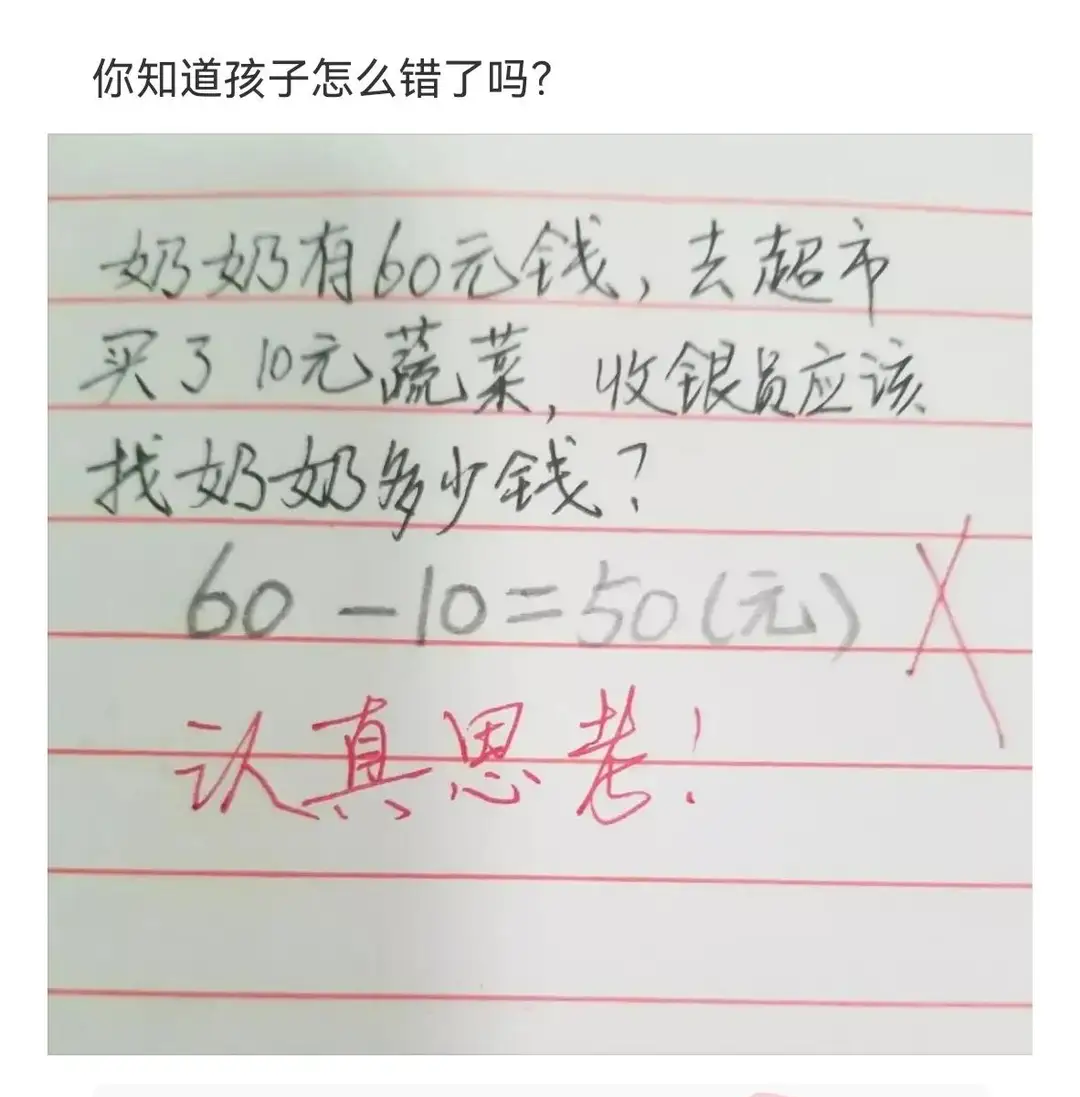 你知道孩子怎么错了吗?
奶奶有60元钱，去超市
买了10元蔬菜，收银员应该
找奶奶多少钱？
60-10=50(元)
认真思考！